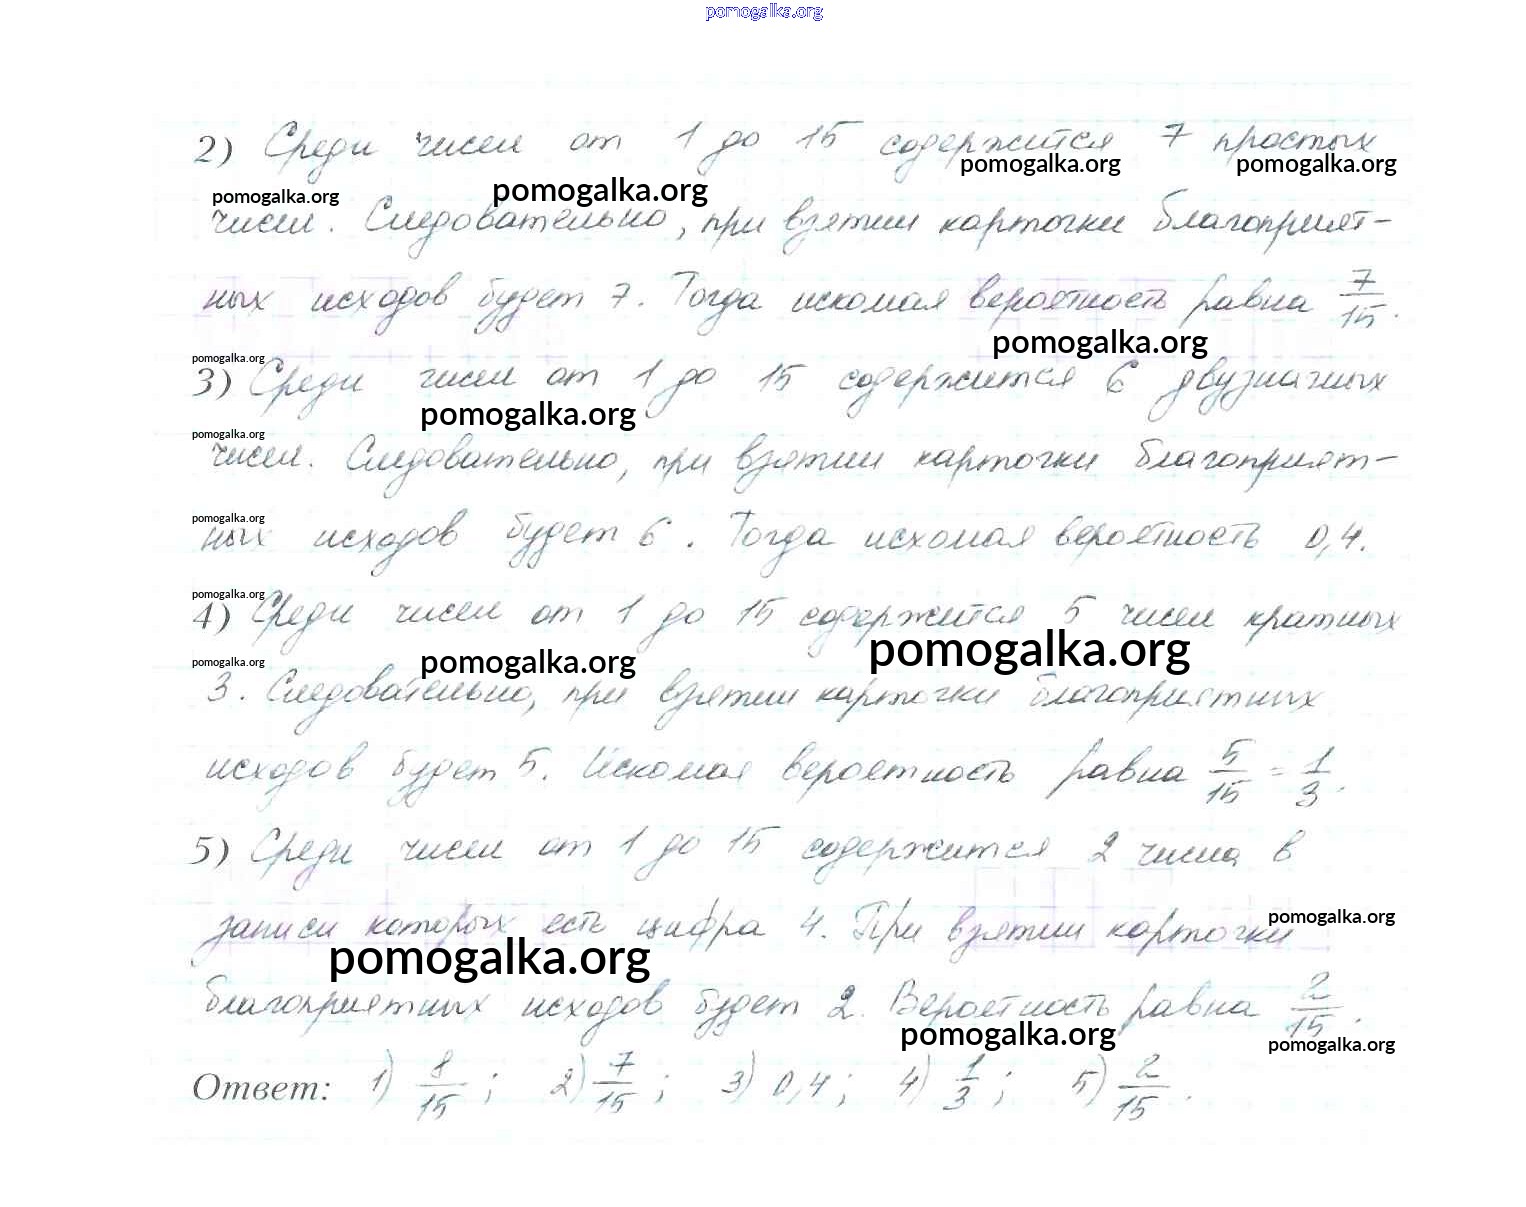 pomogalka.org
2) Среди чисел от 1 до 15 содержится 7 простых
pomogalka.org pomogalka.org
pomogalka.org pomogalka.org
чисел. Следовательно, при взятии карточки благоприят-
ных исходов будет 7. Тогда искомая вероятность равна 7/15.
pomogalka.org
pomogalka.org
3) Среди чисел от 1 до 15 содержится 6 двузначных
pomogalka.org
pomogalka.org
чисел. Следовательно, при взятии карточки благоприят-
pomogalka.org
ных исходов будет 6. Тогда искомая вероятность 0,4.
pomogalka.org
4) Среди чисел от 1 до 15 содержится 5 чисел кратных
pomogalka.org pomogalka.org pomogalka.org
3. Следовательно, при взятии карточки благоприятных
исходов будет 5. Искомая вероятность равна 5/15 = 1/3.
5) Среди чисел от 1 до 15 содержится 2 числа в
pomogalka.org
записи которых есть цифра 4. При взятии карточки
pomogalka.org
благоприятных исходов будет 2. Вероятность равна 2/15.
pomogalka.org pomogalka.org
Ответ: 1) 8/15; 2) 7/15; 3) 0,4; 4) 1/3; 5) 2/15.